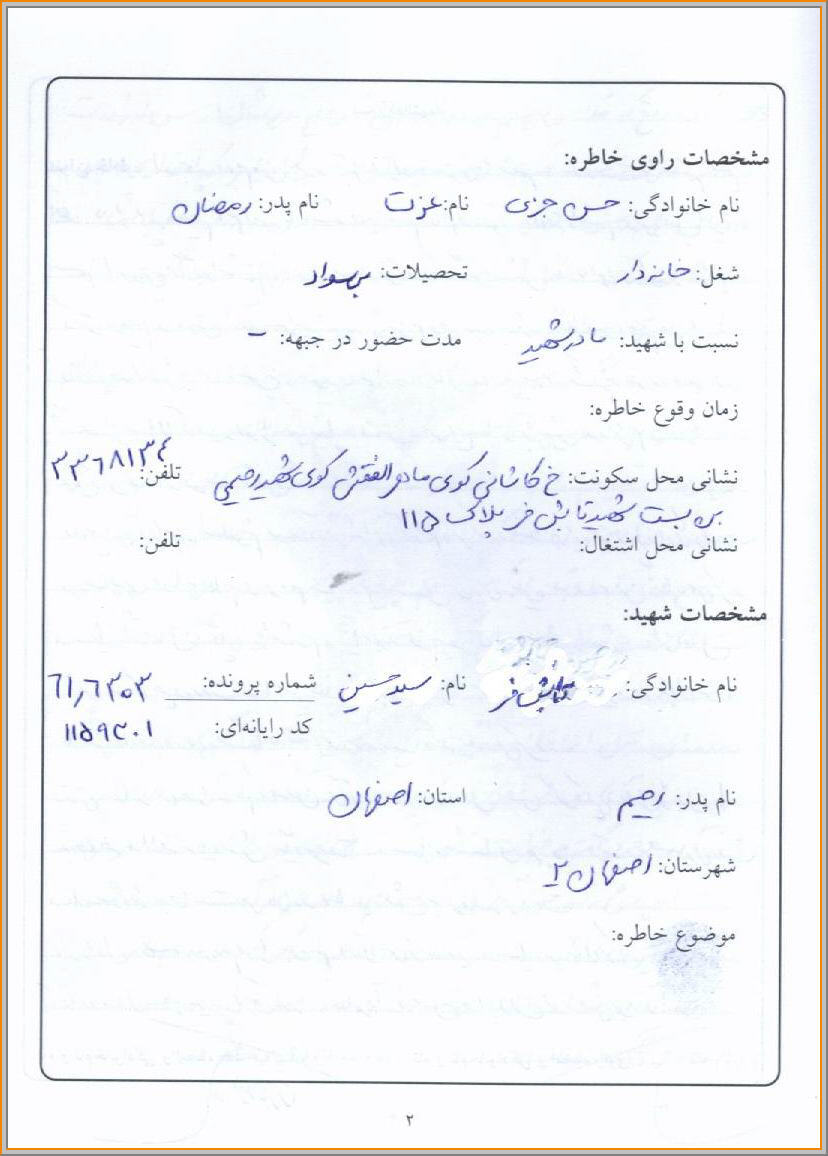 مشخصات راوی خاطره:
نام خانوادگی: حسن جزی نام: عزت نام پدر: رمضان
شغل: خانه دار تحصیلات: بیسواد
نسبت با شهید: مادر شهید مدت حضور در جبهه: –
زمان وقوع خاطره:
نشانی محل سکونت: خ کاشانی کوی ماهر النقش کوی شهید رحیمی تلفن: ۳۳۶۸۱۳۴
بن بست شهید تابش فر پلاک ۱۱۵
نشانی محل اشتغال: تلفن:
مشخصات شهید:
نام خانوادگی: تابش فر نام: سید حسین شماره پرونده: ۶۱٫۶۳۵۳
کد رایانه‌ای: ۱۱۵۹۳۰۱
نام پدر: رحیم استان: اصفهان
شهرستان: اصفهان ۲
موضوع خاطره:
۲